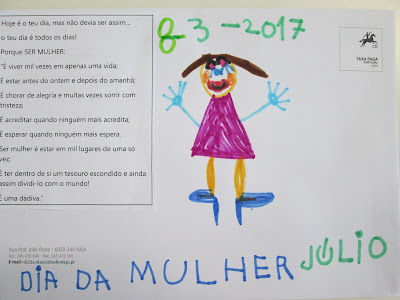 Hoje é o teu dia, mas não devia ser assim...
o teu dia é todos os dias!
Porque SER MULHER:
"É viver mil vezes em apenas uma vida;
É estar antes do ontem e depois do amanhã;
É chorar de alegria e muitas vezes sorrir com
tristeza;
É acreditar quando ninguém mais acredita;
É esperar quando ninguém mais espera.
Ser mulher é estar em mil lugares de uma só
vez;
É ter dentro de si um tesouro escondido e ainda
assim dividi-lo com o mundo!
É uma dádiva."
8-3-2017
TAXA PAGA
PORTUGAL
Rua Prof. João Porto - 6050-344 NISA
DIA DA MULHER JÚLIO